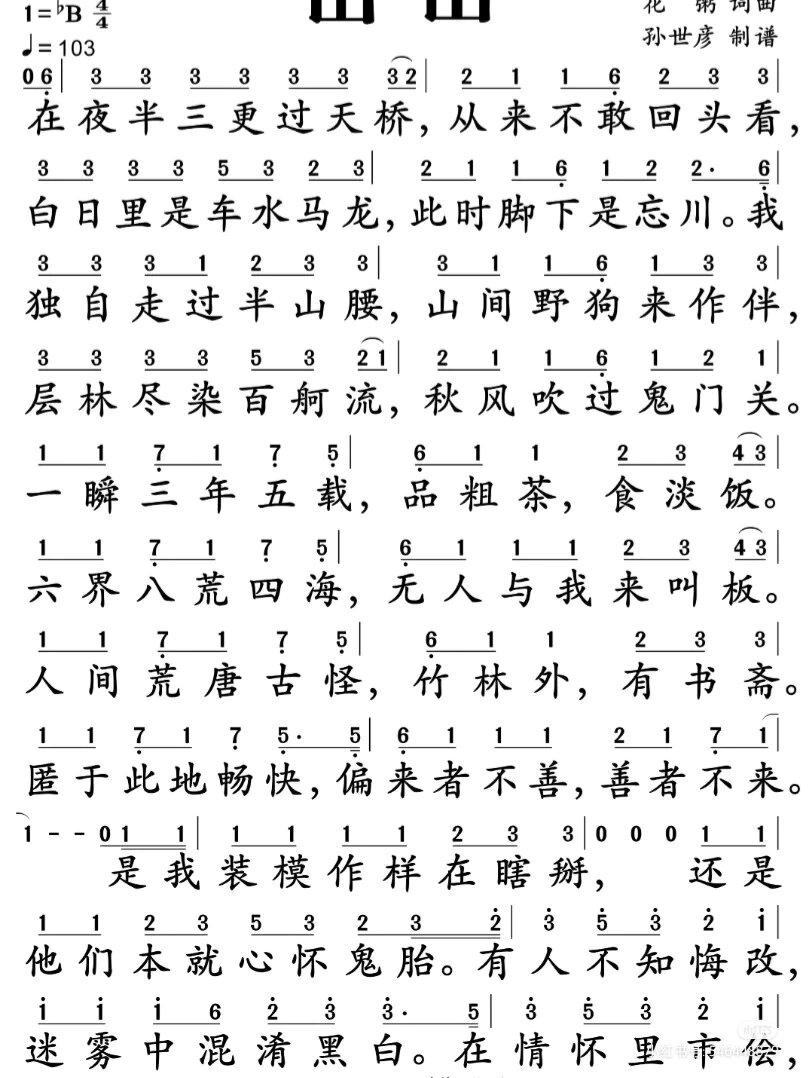 1=♭B 4/4
花 粥 词曲
♩=103
孙世彦 制谱
0 6 | 3 3 3 3 3 3 3 2 | 2 1 1 6 2 3 3 |
在夜半三更过天桥，从来不敢回头看，
3 3 3 3 5 3 2 3 | 2 1 1 6 1 2 2· 6
白日里是车水马龙，此时脚下是忘川。我
3 3 3 1 2 3 3 | 3 1 1 6 1 3 3 |
独自走过半山腰，山间野狗来作伴，
3 3 3 3 5 3 2 1 | 2 1 1 6 1 2 1 |
层林尽染百舸流，秋风吹过鬼门关。
1 1 7 1 7 5 | 6 1 1 2 3 4 3 |
一瞬三年五载，品粗茶，食淡饭。
1 1 7 1 7 5 | 6 1 1 1 2 3 4 3 |
六界八荒四海，无人与我来叫板。
1 1 7 1 7 5 | 6 1 1 2 3 3 |
人间荒唐古怪，竹林外，有书斋。
1 1 7 1 7 5· 5 | 6 1 1 1 2 1 7 1 |
匿于此地畅快，偏来者不善，善者不来。
1 - - 0 1 1 | 1 1 1 1 2 3 3 | 0 0 0 1 1 |
是我装模作样在瞎掰，还是
1 1 2 3 5 3 2 3 2 | 3 5 3 2 1 |
他们本就心怀鬼胎。有人不知悔改，
1 1 1 6 2 3 3· 5 | 3 5 3 2 1 |
迷雾中混淆黑白。在情怀里市侩，